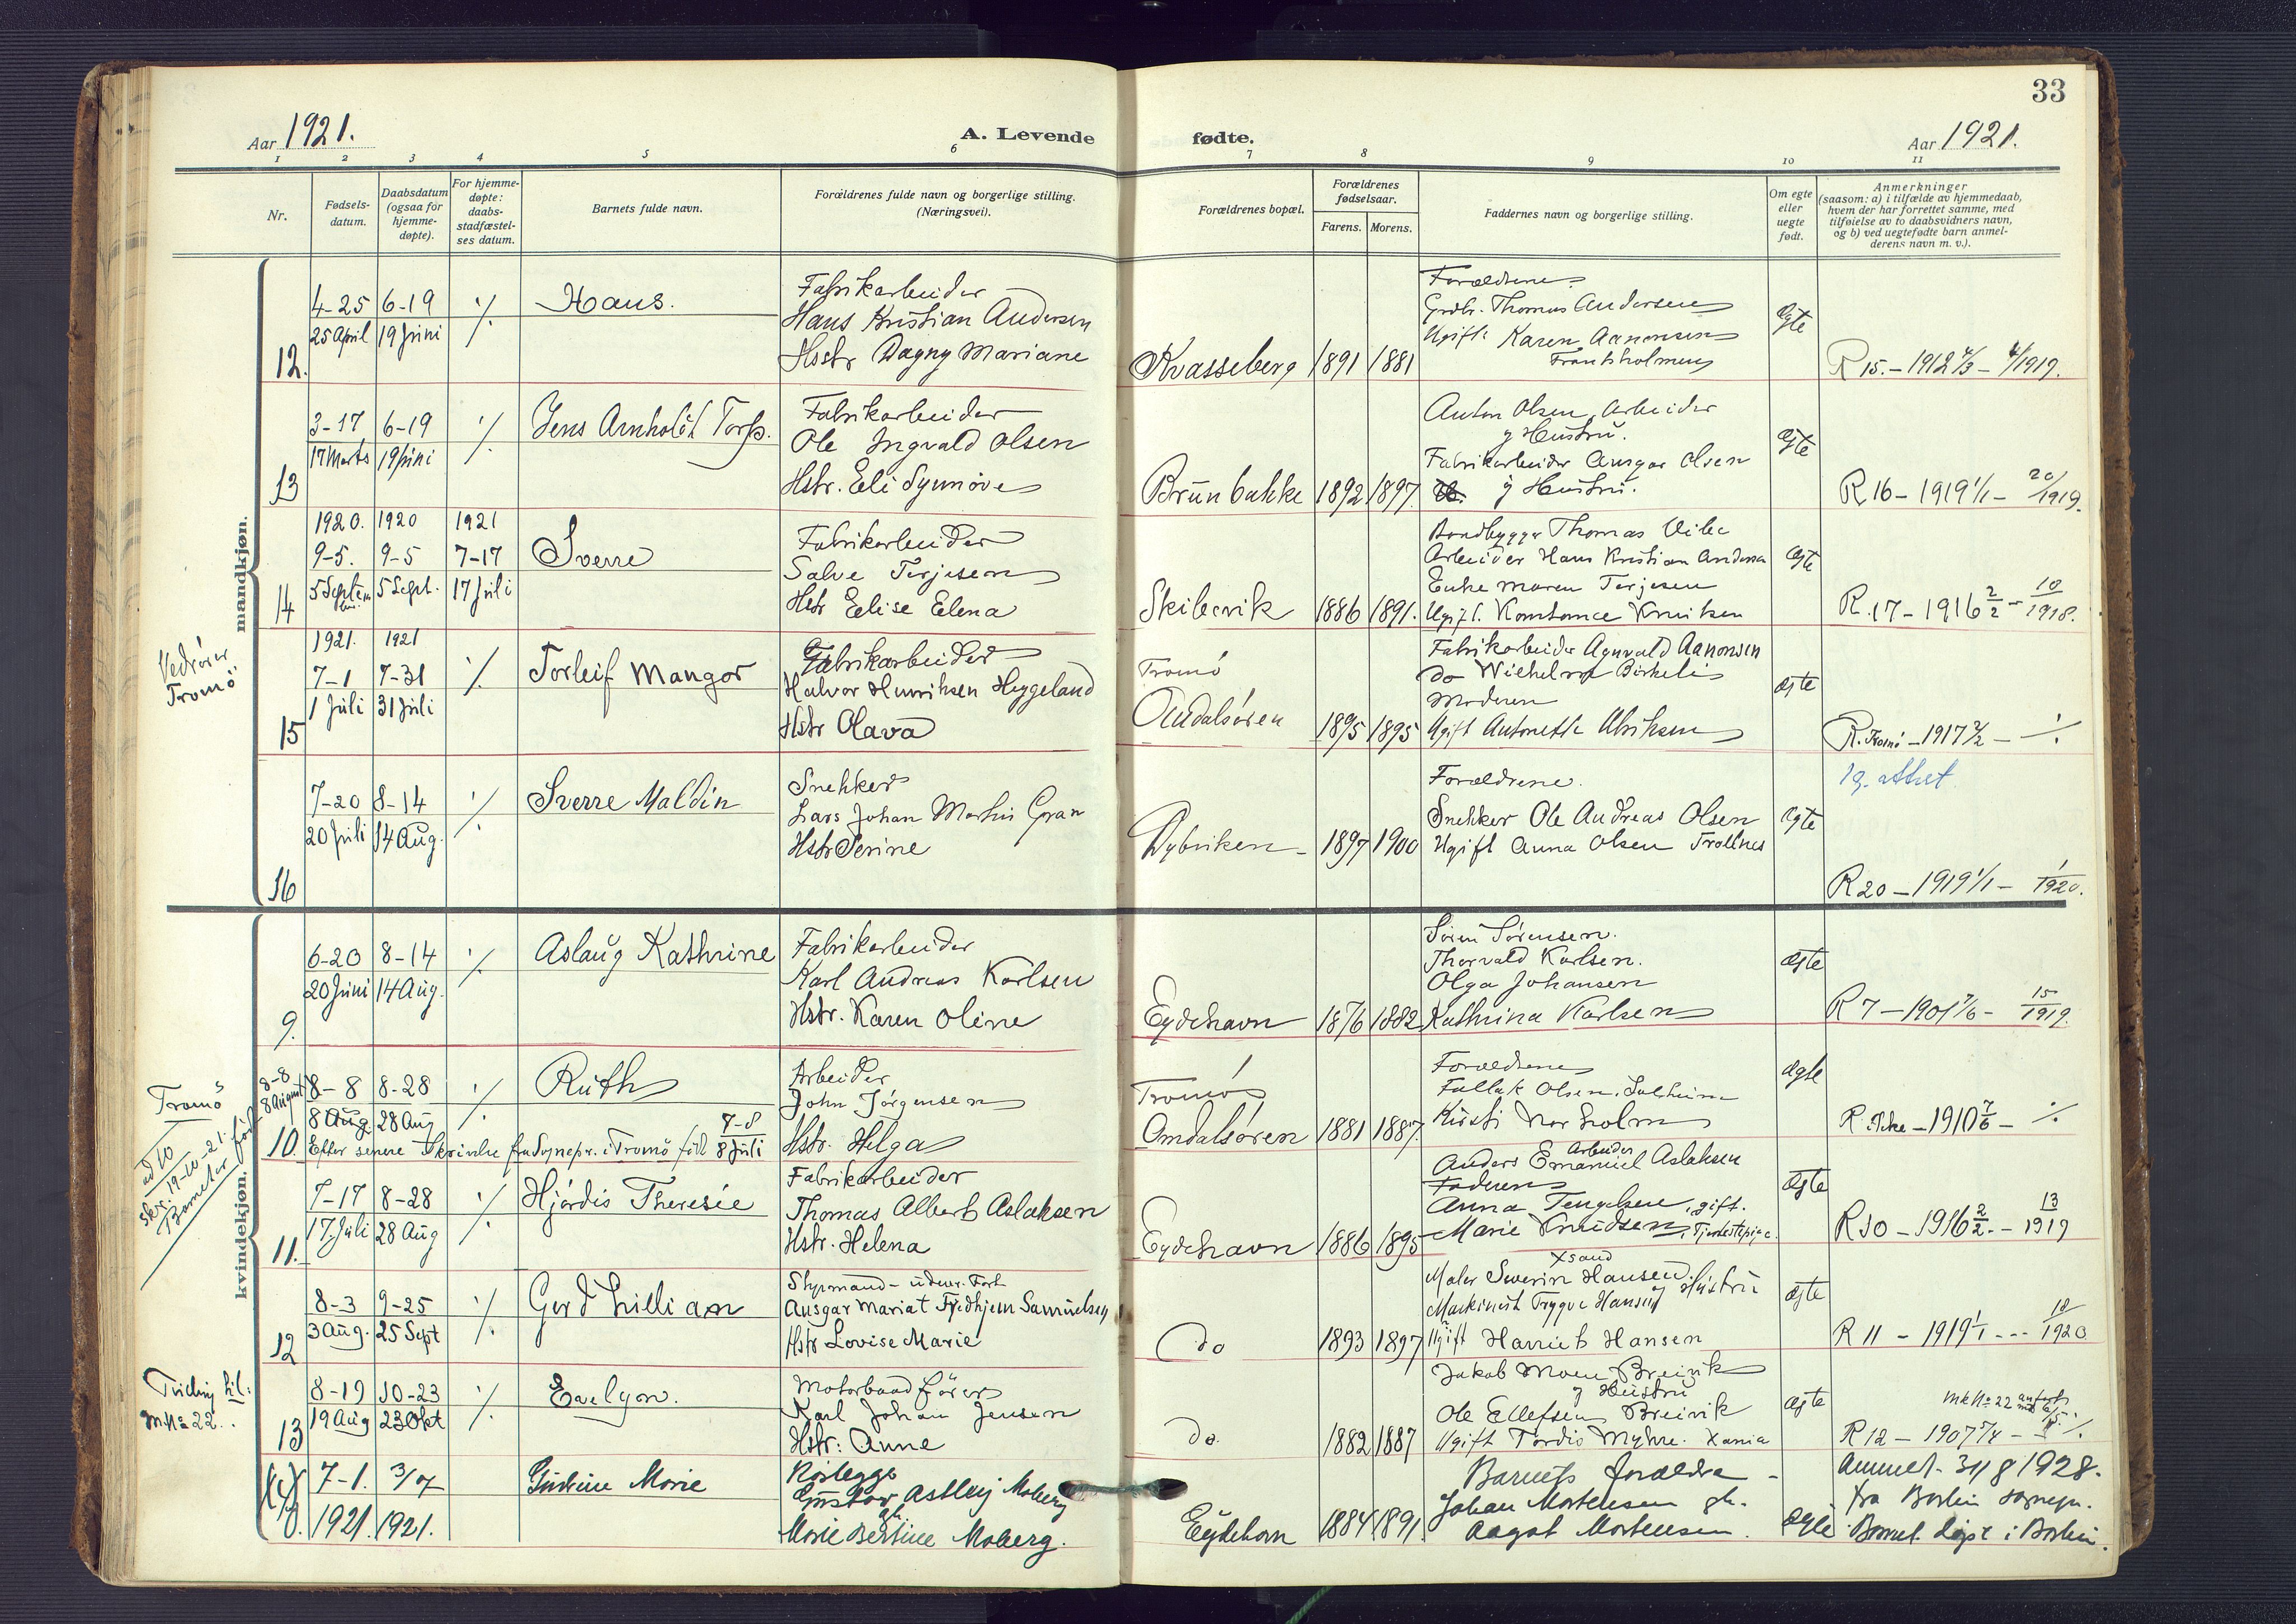 33
Aar 1921.
A. Levende fødte.
Aar 1921.
1 2 3 4 5 6 7 8 9 10 11
Nr.
Fødsels-
datum.
Daabsdatum
(ogsaa for
hjemme-
døpte).
For hjemme-
døpte:
daabs-
stadfæstel-
ses datum.
Barnets fulde navn.
Forældrenes fulde navn og borgerlige stilling.
(Næringsvei).
Forældrenes bopæl.
Forældrenes
fødselsaar.
Farens. Morens.
Faddernes navn og borgerlige stilling.
Om egte
eller
uegte
født.
Anmerkninger
(saasom: a) i tilfælde av hjemmedaab,
hvem der har forrettet samme, med
tilføielse av to daabsvidners navn,
og b) ved uegtefødte barn anmel-
derens navn m. v.).
mandkjøn.
12.
4-25 6-19
25 April 19 Juni
Hans.
Fabrikarbeider
Hans Kristian Andersen
Hstr Dagny Mariane
Kvasseberg 1891 1881
Forældrene
Grdbr. Thomas Andersen
Ugift: Karen Aanonsen
Frantsholmen
Ægte
R 15. - 1912
13
3-17 6-19
17 Marts 19 Juni
Jens Arnholdt Torp.
Fabrikarbeider
Ole Ingvald Olsen
Hstr. Eli Synnøve
Brunbakke 1892 1897
Anton Olsen, Arbeider
og Hustru.
Fabrikarbeider Ansgar Olsen
og Hustru.
Ægte
R 16 - 1919 1/1 - 20/1919.
14
1920. 1920 1921
9-5. 9-5 7-17
5 Septem 5 Sept. 17 Juli
Sverre
Fabrikarbeider
Salve Terjesen
Hstr Elise Elena
Skibervik 1886 1891.
Baadbygger Thomas Vibe
Arbeider Hans Kristian Andersen
Enke Maren Terjesen
Ugift. Konstance Knutsen
Ægte
R. 17 - 1916 2/2 - 10/1918.
Vedrører
Tromø
15
1921. 1921
7-1 7-31
1 Juli 31 Juli
Torleif Mangor
Fabrikarbeider
Halvor Henriksen Heggeland
Hstr Olava
Tromø
Omdalsøren 1895 1895
Fabrikarbeider Agnvald Aanonsen
do Wilhelm Birkeli
Moderen
Ugift Antonette Ulriksen
Ægte
R. Tromø - 1917 2/2 -
19. attest
16
7-20 8-14
20 Juli 14 Aug.
Sverre Maldin
Snekker
Lars Johan Martin Gran
Hstr Serine
Dybviken - 1897 1900
Forældrene.
Snekker Ole Andreas Olsen
Ugift Anna Olsen Trollnes
Ægte
R 20 - 1919 1/1 - 1/1920.
kvindekjøn.
9.
6-20 8-14
20 Juni 14 Aug.
Aslaug Kathrine
Fabrikarbeider
Karl Andreas Karlsen
Hstr. Karen Oline
Eydehavn 1876 1882
Søren Sørensen.
Thorvald Karlsen.
Olga Johansen
Kathrina Karlsen
Ægte
R 7 - 1901 - 15/1919.
Tromø
ad 10
skr. 19-10-21
Barnet er født
8-8
8 August
10.
8-8 8-28
8 Aug. 28 Aug
Ruth
Efter senere skrivelse fra Sognepr. i Tromø født 7-8
8 Juli
Arbeider
John Jørgensen
Hstr. Helga
Tromø
Omdalsøren 1881 1887.
Forældrene
Fallak Olsen, Solheim
Kirsti Norholm
Ægte
R. Ikke - 1910 7/6 -
11.
7-17 8-28
17. Juli 28 Aug
Hjørdis Theresie
Fabrikarbeider
Thomas Albert Aslaksen
Hstr. Helena
Eydehavn 1886 1895
Arbeider
Anders Emanuel Aslaksen
Faderen
Anna Tengelsen, gift.
Marie Knudsen, Tjenestepige.
Ægte
R 10 - 1916 2/2 - 13/1919
12
8-3 9-25
3 Aug. 25 Sept
Gerd Lillian
Styrmand - udenr. Fart
Ansgar Mariat Fredhjem Samuelsen
Hstr Lovise Marie
do 1893 1897
Xsand
Maler Severin Hansen
Maskinist Trygve Hansen og Hustru
Ugift Harriet Hansen
Ægte
R 11 - 1919 1/1 - 10/1920
Tvilling til:
M.No 22.
13
8-19 10-23
19 Aug 23 Okt
Evelyn.
Motorbaadfører
Karl Johan Jensen
Hstr: Anne
do. 1882 1887
Jakob Moen, Breivik
og Hustru
Ole Ellefsen Breivik
Ugift Tordis Myhre. Xania
Ægte
mk No 22
R 12 - 1907
7-1. 3/7
1921. 1921.
Gudrun Marie
Gustav Astley Moberg
Marie Bertine Moberg.
Eydehavn 1884 1891
Barnets forældre -
Johan Mortensen
Aagot Mortensen.
Ægte
Anmeldt 31/8 1928.
fra Borlin sognepr.
Barnet døpt i Borlin.